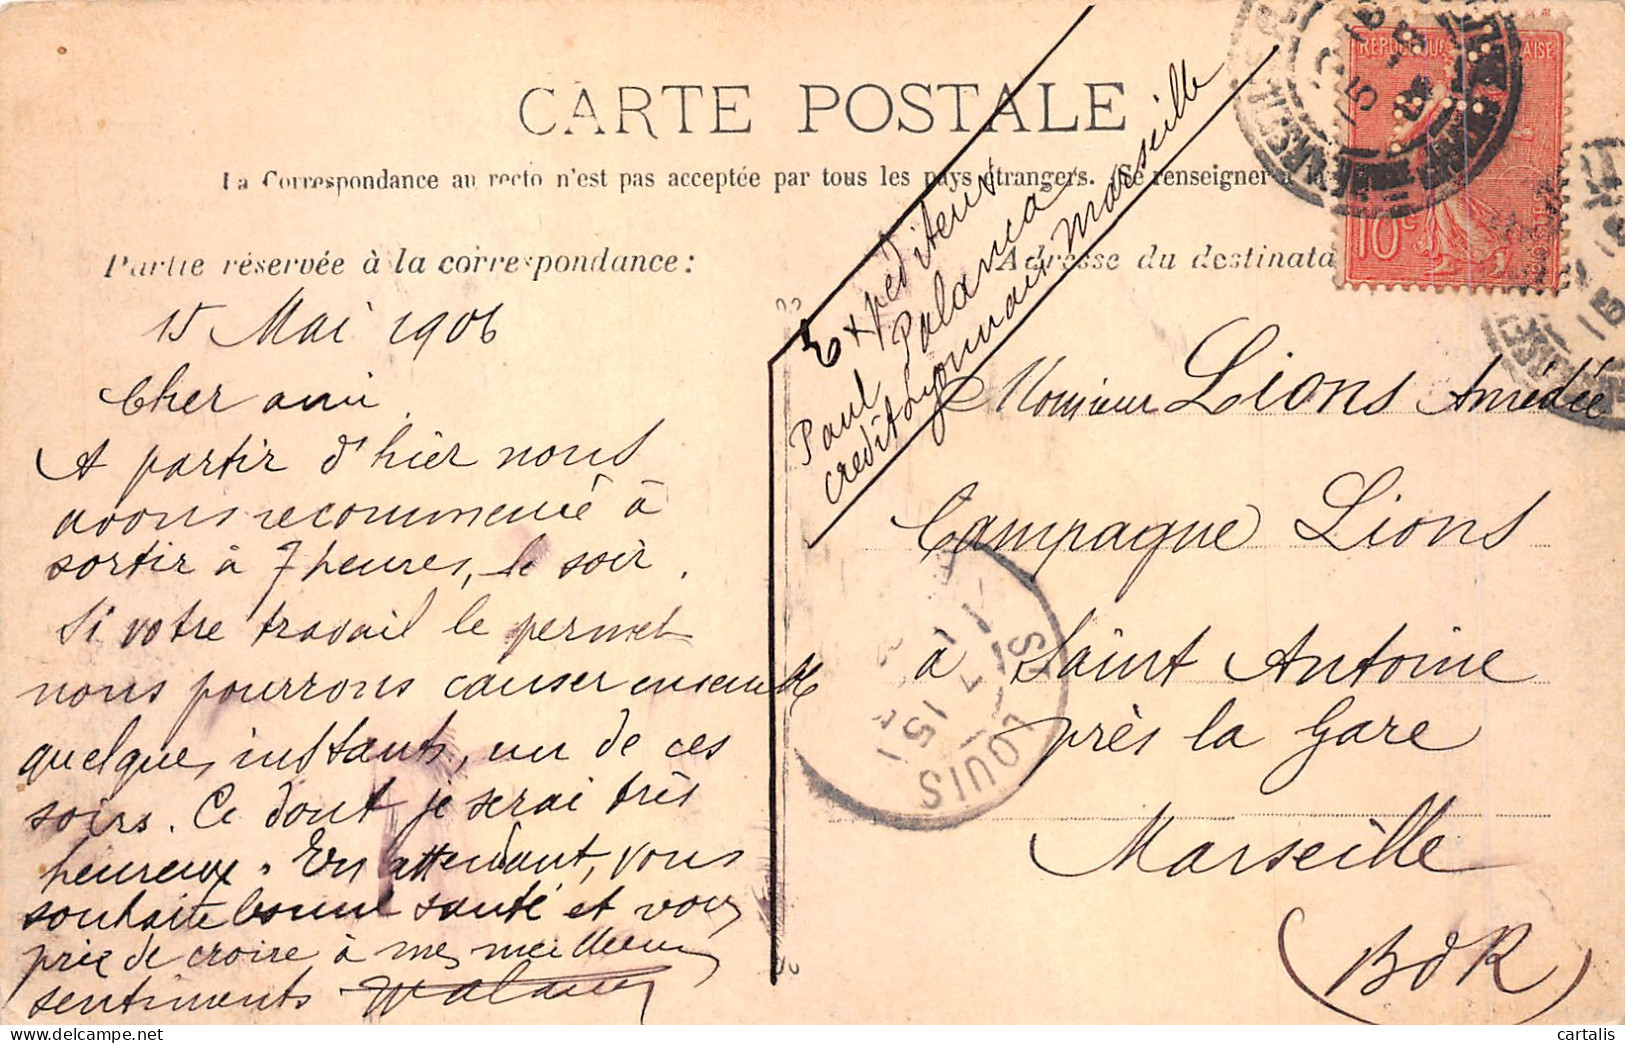 CARTE POSTALE
La Correspondance au recto n'est pas acceptée par tous les pays étrangers. (Se renseigner à la
Partie réservée à la correspondance:
Adresse du destinata
RÉPUBLIQUE FRANÇAISE
10c
POSTES
15 Mai 1906
Cher ami
A partir d'hier nous
avons recommencé à
sortir à 7 heures, le soir.
Si votre travail le permet
nous pourrons causer ensemble
quelques instants, un de ces
soirs. Ce dont je serai très
heureux. En attendant, vous
souhaite bonne santé et vous
prie de croire à mes meilleurs
sentiments
Expéditeur
Paul Palanca
credit Lyonnais Marseille
Monsieur Lions Amédée
Campagne Lions
à Saint Antoine
près la Gare
Marseille
(BdR)
ST LOUIS
15
cartalis